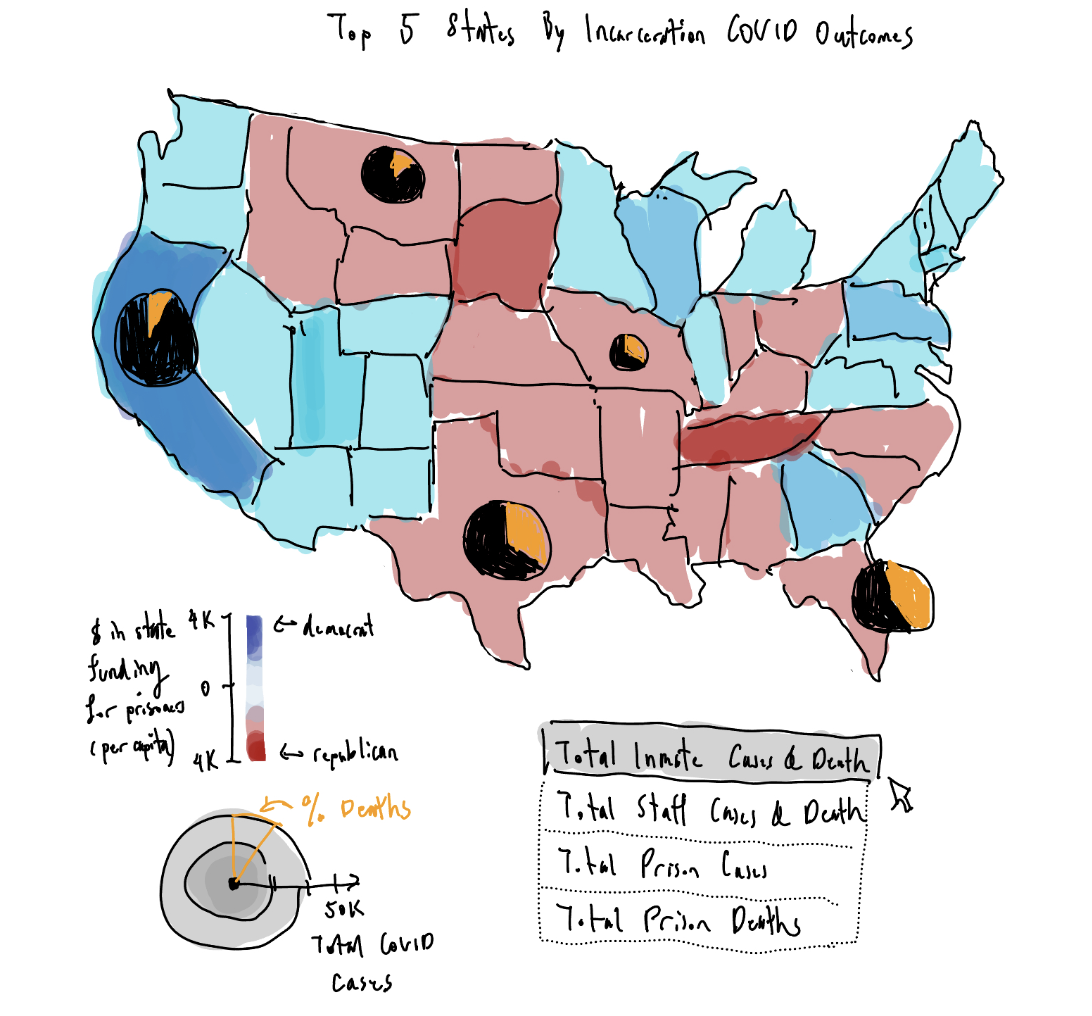 Top 5 States By Incarceration COVID Outcomes
$ in state
funding
for prisoners
(per capita)
4K
0
4K
← democrat
← republican
% Deaths
50K
Total COVID
Cases
Total Inmate Cases & Death
Total Staff Cases & Death
Total Prison Cases
Total Prison Deaths